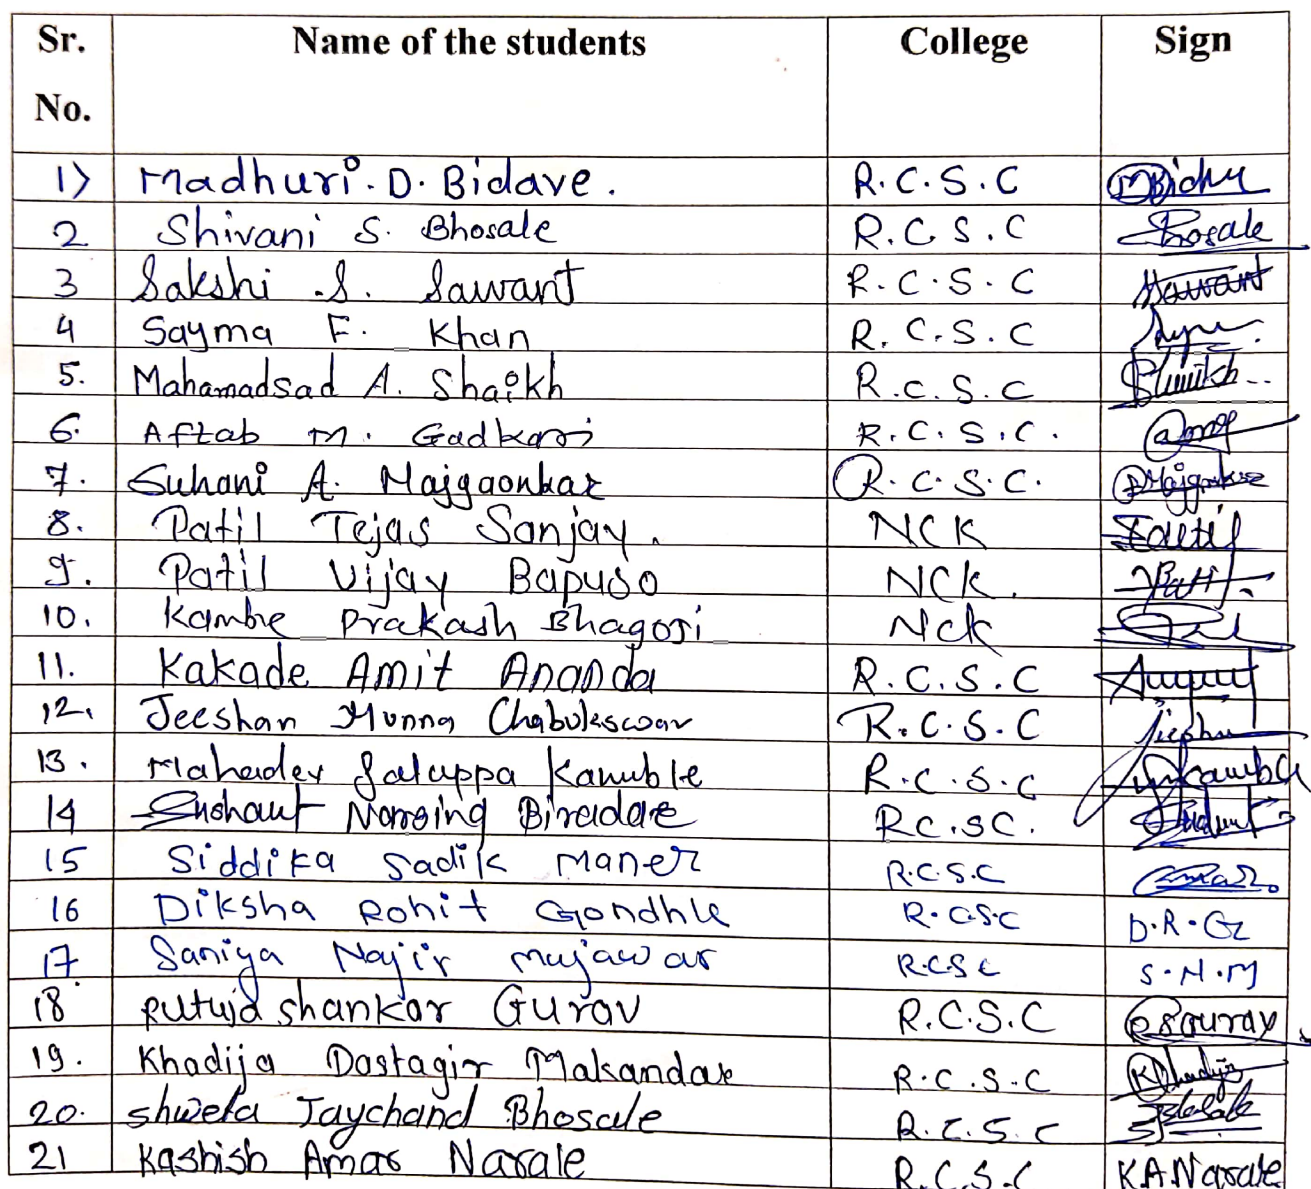 Sr. No. Name of the students College Sign
1) Madhuri. D. Bidave. R.C.S.C
2 Shivani S. Bhosale R.C.S.C Bhosale
3 Sakshi .S. Sawant R.C.S.C Sawant
4 Sayma F. Khan R.C.S.C
5. Mahamadsad A. Shaikh R.C.S.C
6. Aftab M. Gadkari R.C.S.C.
7. Suhani A. Majgaonkar R.C.S.C.
8. Patil Tejas Sanjay. NCK
9. Patil Vijay Bapuso NCK.
10. Kambre Prakash Bhagoji NCK
11. Kakade Amit Ananda R.C.S.C
12. Jeeshan Munna Chabukswar R.C.S.C
13. Mahadev Saluppa Kamble R.C.S.C
14 Sushant Narsing Biradar RC.SC.
15 Siddika Sadik Maner R.C.S.C
16 Diksha Rohit Gondhle R.C.S.C D.R.G
17 Saniya Najir mujawar R.C.S.C S.N.M
18 Rutuja shankar Gurav R.C.S.C
19. Khadija Dastagir Makandar R.C.S.C
20. Shweta Jaychand Bhosale R.C.S.C
21 Kashish Amar Narale R.C.S.C K.A.Narale